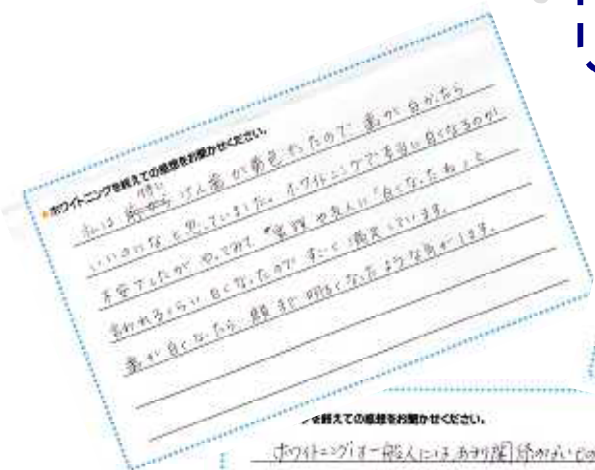 ホワイトニングを終えての感想をお聞かせください。
私は けっこう歯が黄色かったので 歯が白かったら
いいのになと思っていました。ホワイトニングで本当に白くなるのか
不安でしたが やってみて 家族や友人に「白くなったね」と
言われるくらい白くなったので すごく満足しています。
歯が白くなったら 顔まで明るくなったような気がします。
を終えての感想をお聞かせください。
ホワイトニングは一般人にはあまり関係のないもの